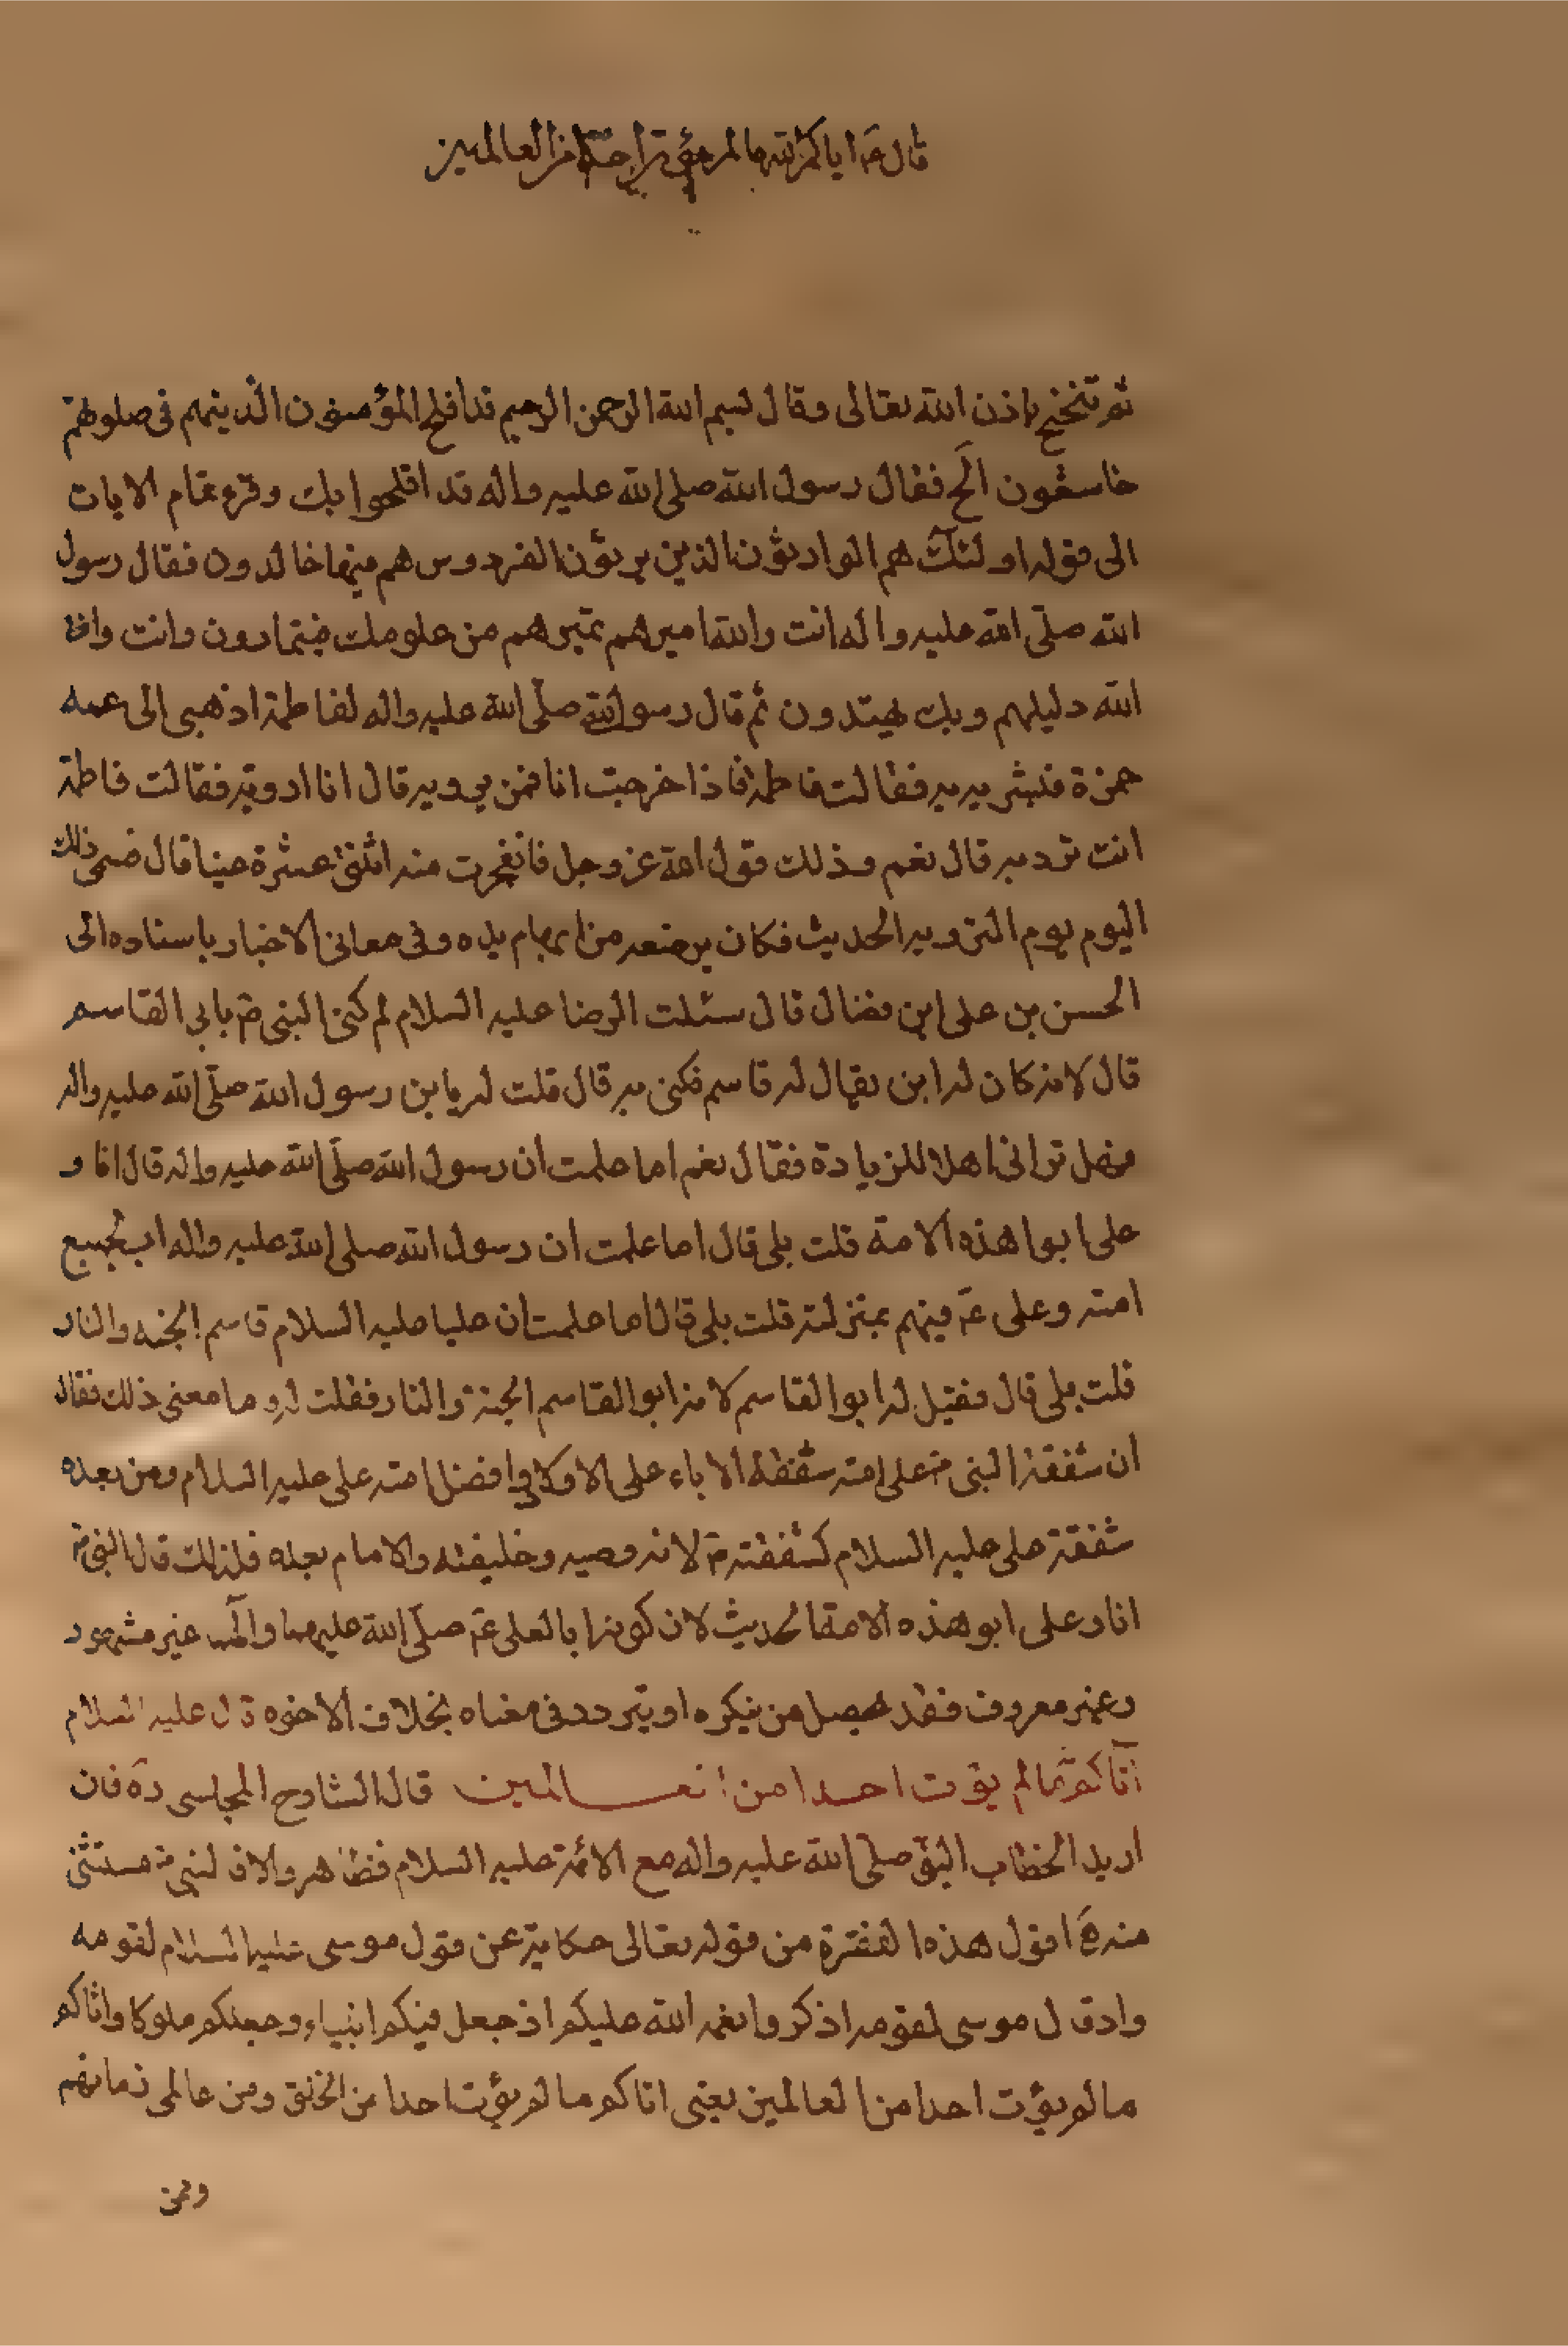 قال ع اتاكم الله ما لم يؤت احدا من العالمين
ثم تنحنح باذن الله تعالى وقال بسم الله الرحمن الرحيم قد افلح المؤمنون الذينهم فى صلوتهم
خاشعون الخ فقال رسول الله صلى الله عليه واله قد افلحوا بك وقرء تمام الايات
الى قوله اولئك هم الوارثون الذين يرثون الفردوس هم فيها خالدون فقال رسول
الله صلى الله عليه واله انت والله اميرهم تميرهم من علومك فيمتارون وانت والله
الله دليلهم وبك يهتدون ثم قال رسول الله صلى الله عليه واله لفاطمة اذهبى الى عمه
حمزة فبشريه به فقالت فاطمة فاذا خرجت انا فمن يرويه قال انا ارويه فقالت فاطمة
انت ترويه قال نعم وذلك قول الله عز وجل فانفجرت منه اثنتى عشرة عينا قال فسمى ذلك
اليوم يوم التروية الحديث فكان يرضعه من ابهام يده وفى معانى الاخبار باسناده الى
الحسن بن على ابن فضال قال سئلت الرضا عليه السلام لم كنى النبى ص بابي القاسم
قال لانه كان له ابن يقال له قاسم فكنى به قال قلت له يا بن رسول الله صلى الله عليه واله
فهل ترانى اهلا للزيادة فقال نعم اما علمت ان رسول الله صلى الله عليه واله قال انا و
على ابوا هذه الامة قلت بلى قال اما علمت ان رسول الله صلى الله عليه واله اب لجميع
امته وعلى ع فيهم بمنزلته قلت بلى قال اما علمت ان عليا عليه السلام قاسم الجنه والنار
قلت بلى قال فقيل له ابو القاسم لانه ابو القاسم الجنة والنار فقلت له وما معنى ذلك فقال
ان شفقة النبى ص على امته شفقة الاباء على الاولاد وافضل امته على عليه السلام ومن بعده
شفقة على عليه السلام كشفقته ص لانه وصيه وخليفته والامام بعده فلذلك قال النبى ص
انا وعلى ابو هذه الامة الحديث لان كونه ابا لعلى ع صلى الله عليهما والهما غير مشهور
وغير معروف فقد يحصل من ينكره او يتردد فى معناه بخلاف الاخوه قال عليه السلام
اتاكم ما لم يؤت احدا من العالمين قال الشارح المجلسى ره فان
اريد الخطاب النبى صلى الله عليه واله مع الائمة عليه السلام فظاهر والا فالنبى ص مستثنى
منه اقول هذه الفقرة من قوله تعالى حكاية عن قول موسى عليه السلام لقومه
واذ قال موسى لقومه اذكروا نعمه الله عليكم اذ جعل فيكم انبياء وجعلكم ملوكا واتاكم
ما لم يؤت احدا من العالمين يعنى اتاكم ما لم يؤت احدا من الخلق ومن عالمى زمانهم
ومن